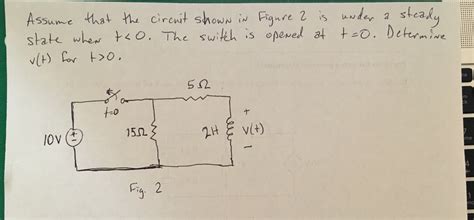 Assume that the circuit shown in Figure 2 is under a steady
state when t<0. The switch is opened at t=0. Determine
v(t) for t>0.
5Ω
t=0
10V
+
-
15Ω
2H
+
v(t)
-
Fig. 2